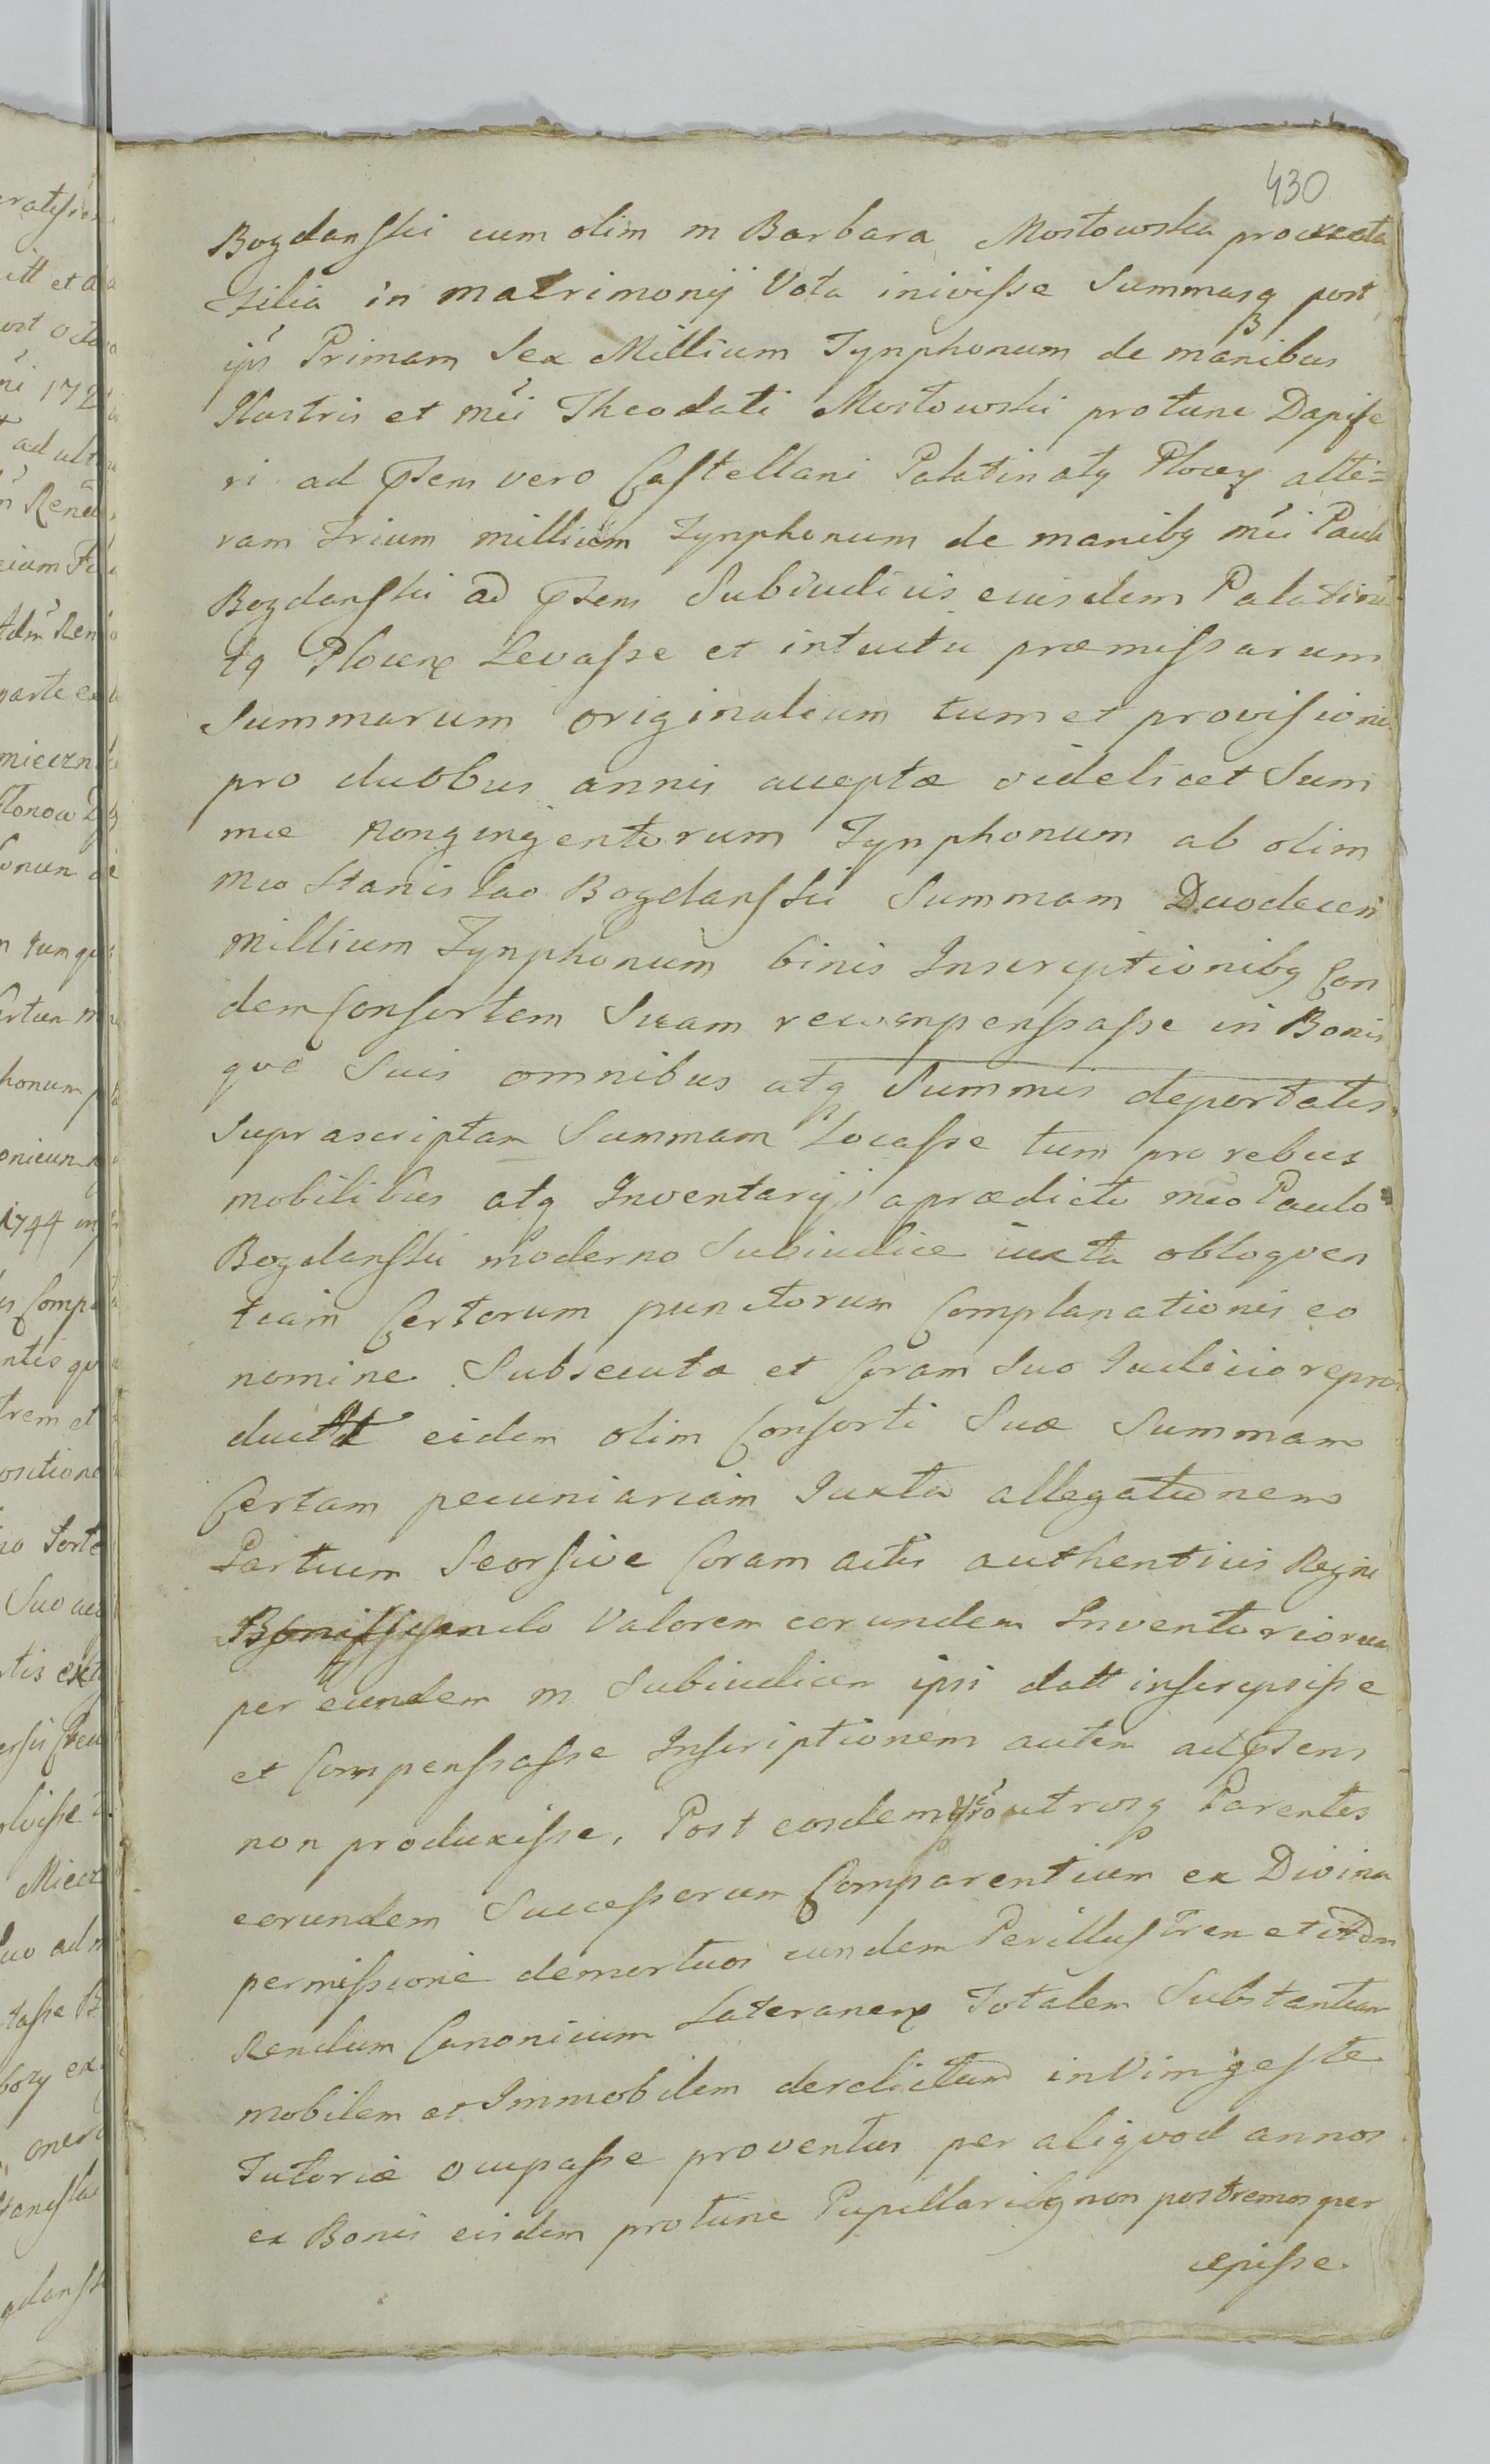 430
Bogdanski cum olim m Barbara Mostowska procreata
Filia in matrimonij Vota inivisse Summasq post
ips Primam Sex Millium Tynphonum de manibus
Ilustris et mci Theodati Mostowski protunc Dapife
ri ad psens vero Castellani Palatinatq Plocens alte=
ram Trium millium Tynphonum de manibq mci Pauli
Bogdanski ad psens Subiudicis eiusdem Palatina
tq Plocens Levasse et intuitu præmissarum
Summarum originalium tum et provisionis
pro duobus annis acceptæ videlicet Sum
mæ Tynphonum ab olim
mco Stanislao Bogdanski Summam Duodecem
millium Tynphonum binis Inscriptionibq Ean
dem Consortem Suam recompenssasse in Bonis
que Suis omnibus atq Summis deportatis
Suprascriptam Summam Locasse tum pro rebus
mobilibus atq Inventarijs aprædicto mco Paulo
Bogdanski moderno Subiudice iuxta obloquen
tiam Certorum punctorum Complanationis eo
nomine Subsecutæ et Coram Suo Iudicio repro
ductæ eidem olim Consorti Suæ Summam
Certam pecuniariam Iuxta allegationem
Partium Seorsive Coram actis authenticis Regni
Valorem eorundem Inventariorum
per eundem m Subiudicem ipsi datt inscripsisse
et Compenssasse Inscriptionem autem adpsens
non produxisse, Post eosdem vero utrosq Parentes
eorundem Successorum Comparentium ex Divina
permissione demortuos eundem Perillustrem et Adm
Rendum Canonicum Lateranens Totalem Substantiam
mobilem et Immobilem derelictam in Vim gestæ
Tutoriæ occupasse proventus per aliquod annos
ex Bonis eisdem protunc Pupillaribq non postremos per
cepisse